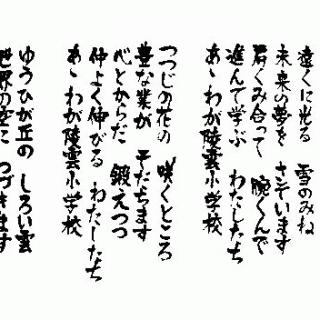 遠くに光る　雪のみね
未来の夢を　さそいます
肩くみ合って　腕くんで
進んで学ぶ　わたしたち
あゝわが陵雲小学校
つつじの花の　咲くところ
豊な業が　そだちます
心とからだ　鍛えつつ
仲よく伸びる　わたしたち
あゝわが陵雲小学校
ゆうひが丘の　しろい雲
世界の空に　つづきます